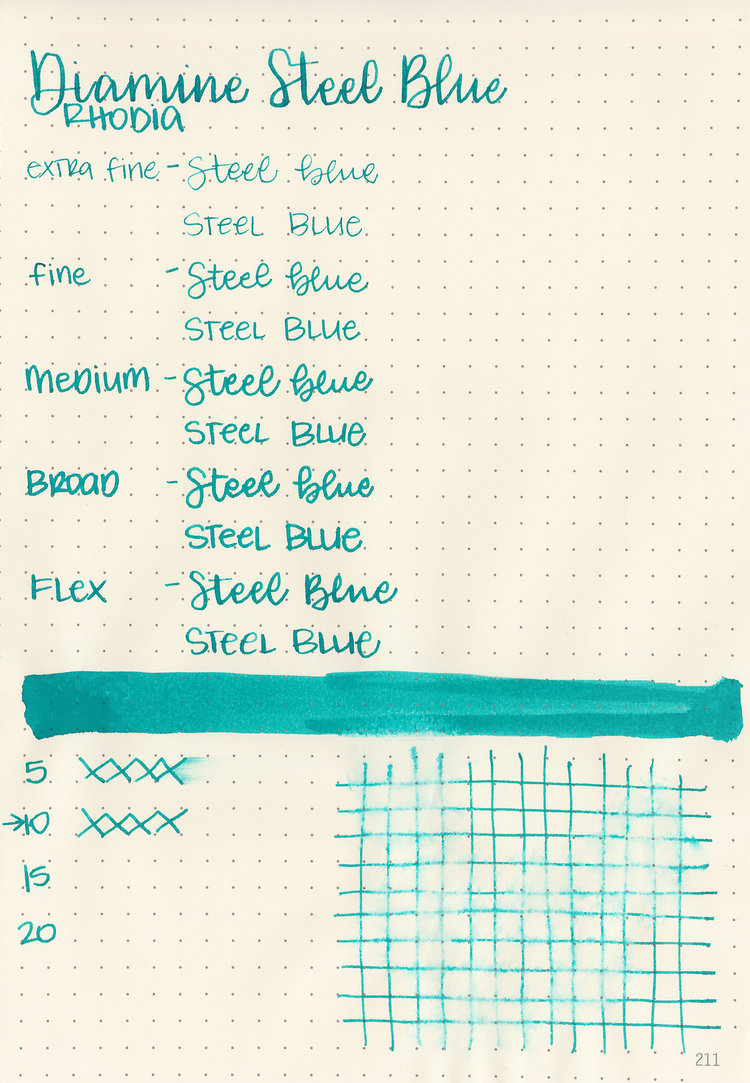 Diamine Steel Blue
RHODIA
extra fine - Steel blue
STeeL BLUe
fine - Steel blue
STeeL BLUe
MeDiuM - Steel blue
STeeL BLUe
BROAD - Steel blue
STeeL BLUe
FLex - Steel Blue
STeeL BLUe
5 XXXX
→10 XXXX
15
20
211